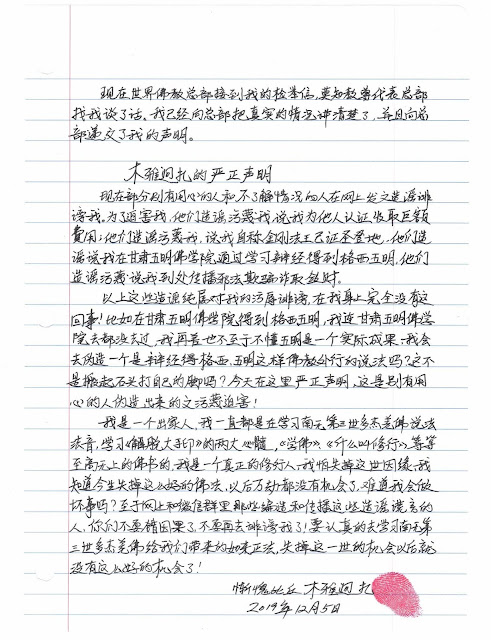 现在世界佛教总部接到我的检举信,莫知教尊代表总部
找我谈了话。我已经向总部把真实的情况讲清楚了,并且向总
部递交了我的声明。
木雅迥扎的严正声明
现在部分别有用心的人和不了解情况的人在网上发文造谣诽
谤我。为了迫害我,他们造谣污蔑我,说我为他人认证收取巨额
费用;他们造谣污蔑我,说我自称金刚法王已证圣登地,他们造
谣说我在甘肃五明佛学院通过学习辩经得到格西五明,他们
造谣污蔑说我到处传播邪法欺骗诈取钱财。
以上这些造谣纯属对我的污辱诽谤,在我身上完全没有这
回事!比如在甘肃五明佛学院得到格西五明,我连甘肃五明佛学
院去都没去过,我再差也不至于不懂五明是一个实际成果,我会
去伪造一个是辩经得格西、五明这样佛教外行的说法吗?这不
是搬起石头打自己的脚吗?今天在这里严正声明,这是别有用
心的人伪造出来的文污蔑迫害!
我是一个出家人,我一直都是在学习南无第三世多杰羌佛说法
法音,学习《解脱大手印》的两大心髓,《学佛》、《什么叫修行》等等
至高无上的佛书的,我是一个真正的修行人,我怕失掉这世因缘,我
知道今生失掉这么好的佛法,以后万劫都没有机会了,难道我会做
坏事吗?至于网上和微信群里那些编造和传播这些造谣谎言的
人,你们不要错因果了,不要再去诽谤我了!要认真的去学习南无第
三世多杰羌佛给我们带来的如来正法,失掉这一世的机会以后就
没有这么好的机会了!
惭愧比丘 木雅迥扎
2019年12月5日